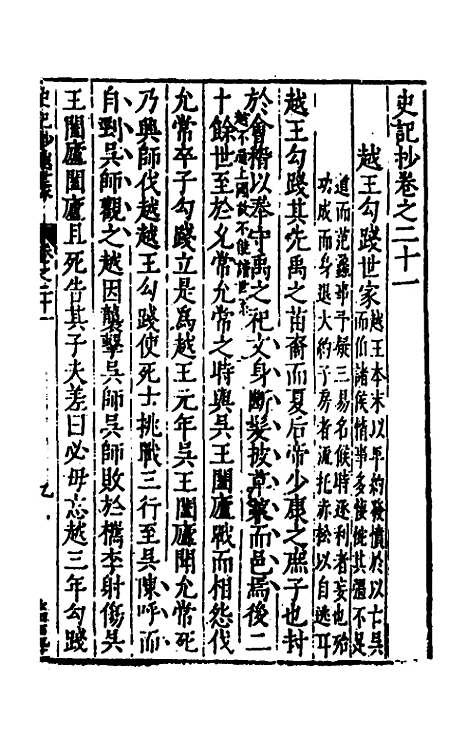 史記抄卷之二十一
越王勾踐世家
越王本末以平約發憤於以亡吳
而伯諸侯情事多慷慨其彊不足
道而范蠡鄙予疑三易名候時逐利者妄也殆
功成而身退大約子房者流托赤松以自逃耳
越王勾踐其先禹之苗裔而夏后帝少康之庶子也封
於會稽以奉守禹之祀文身斷髮披草萊而邑焉後二
越不通上國故不能譜世系
十餘世至於允常允常之時與吳王闔廬戰而相怨伐
允常卒子勾踐立是為越王元年吳王闔廬聞允常死
乃興師伐越越王勾踐使死士挑戰三行至吳陳呼而
自剄吳師觀之越因襲擊吳師吳師敗於檇李射傷吳
王闔廬闔廬且死告其子夫差曰必毋忘越三年勾踐
史記抄
卷之二十一